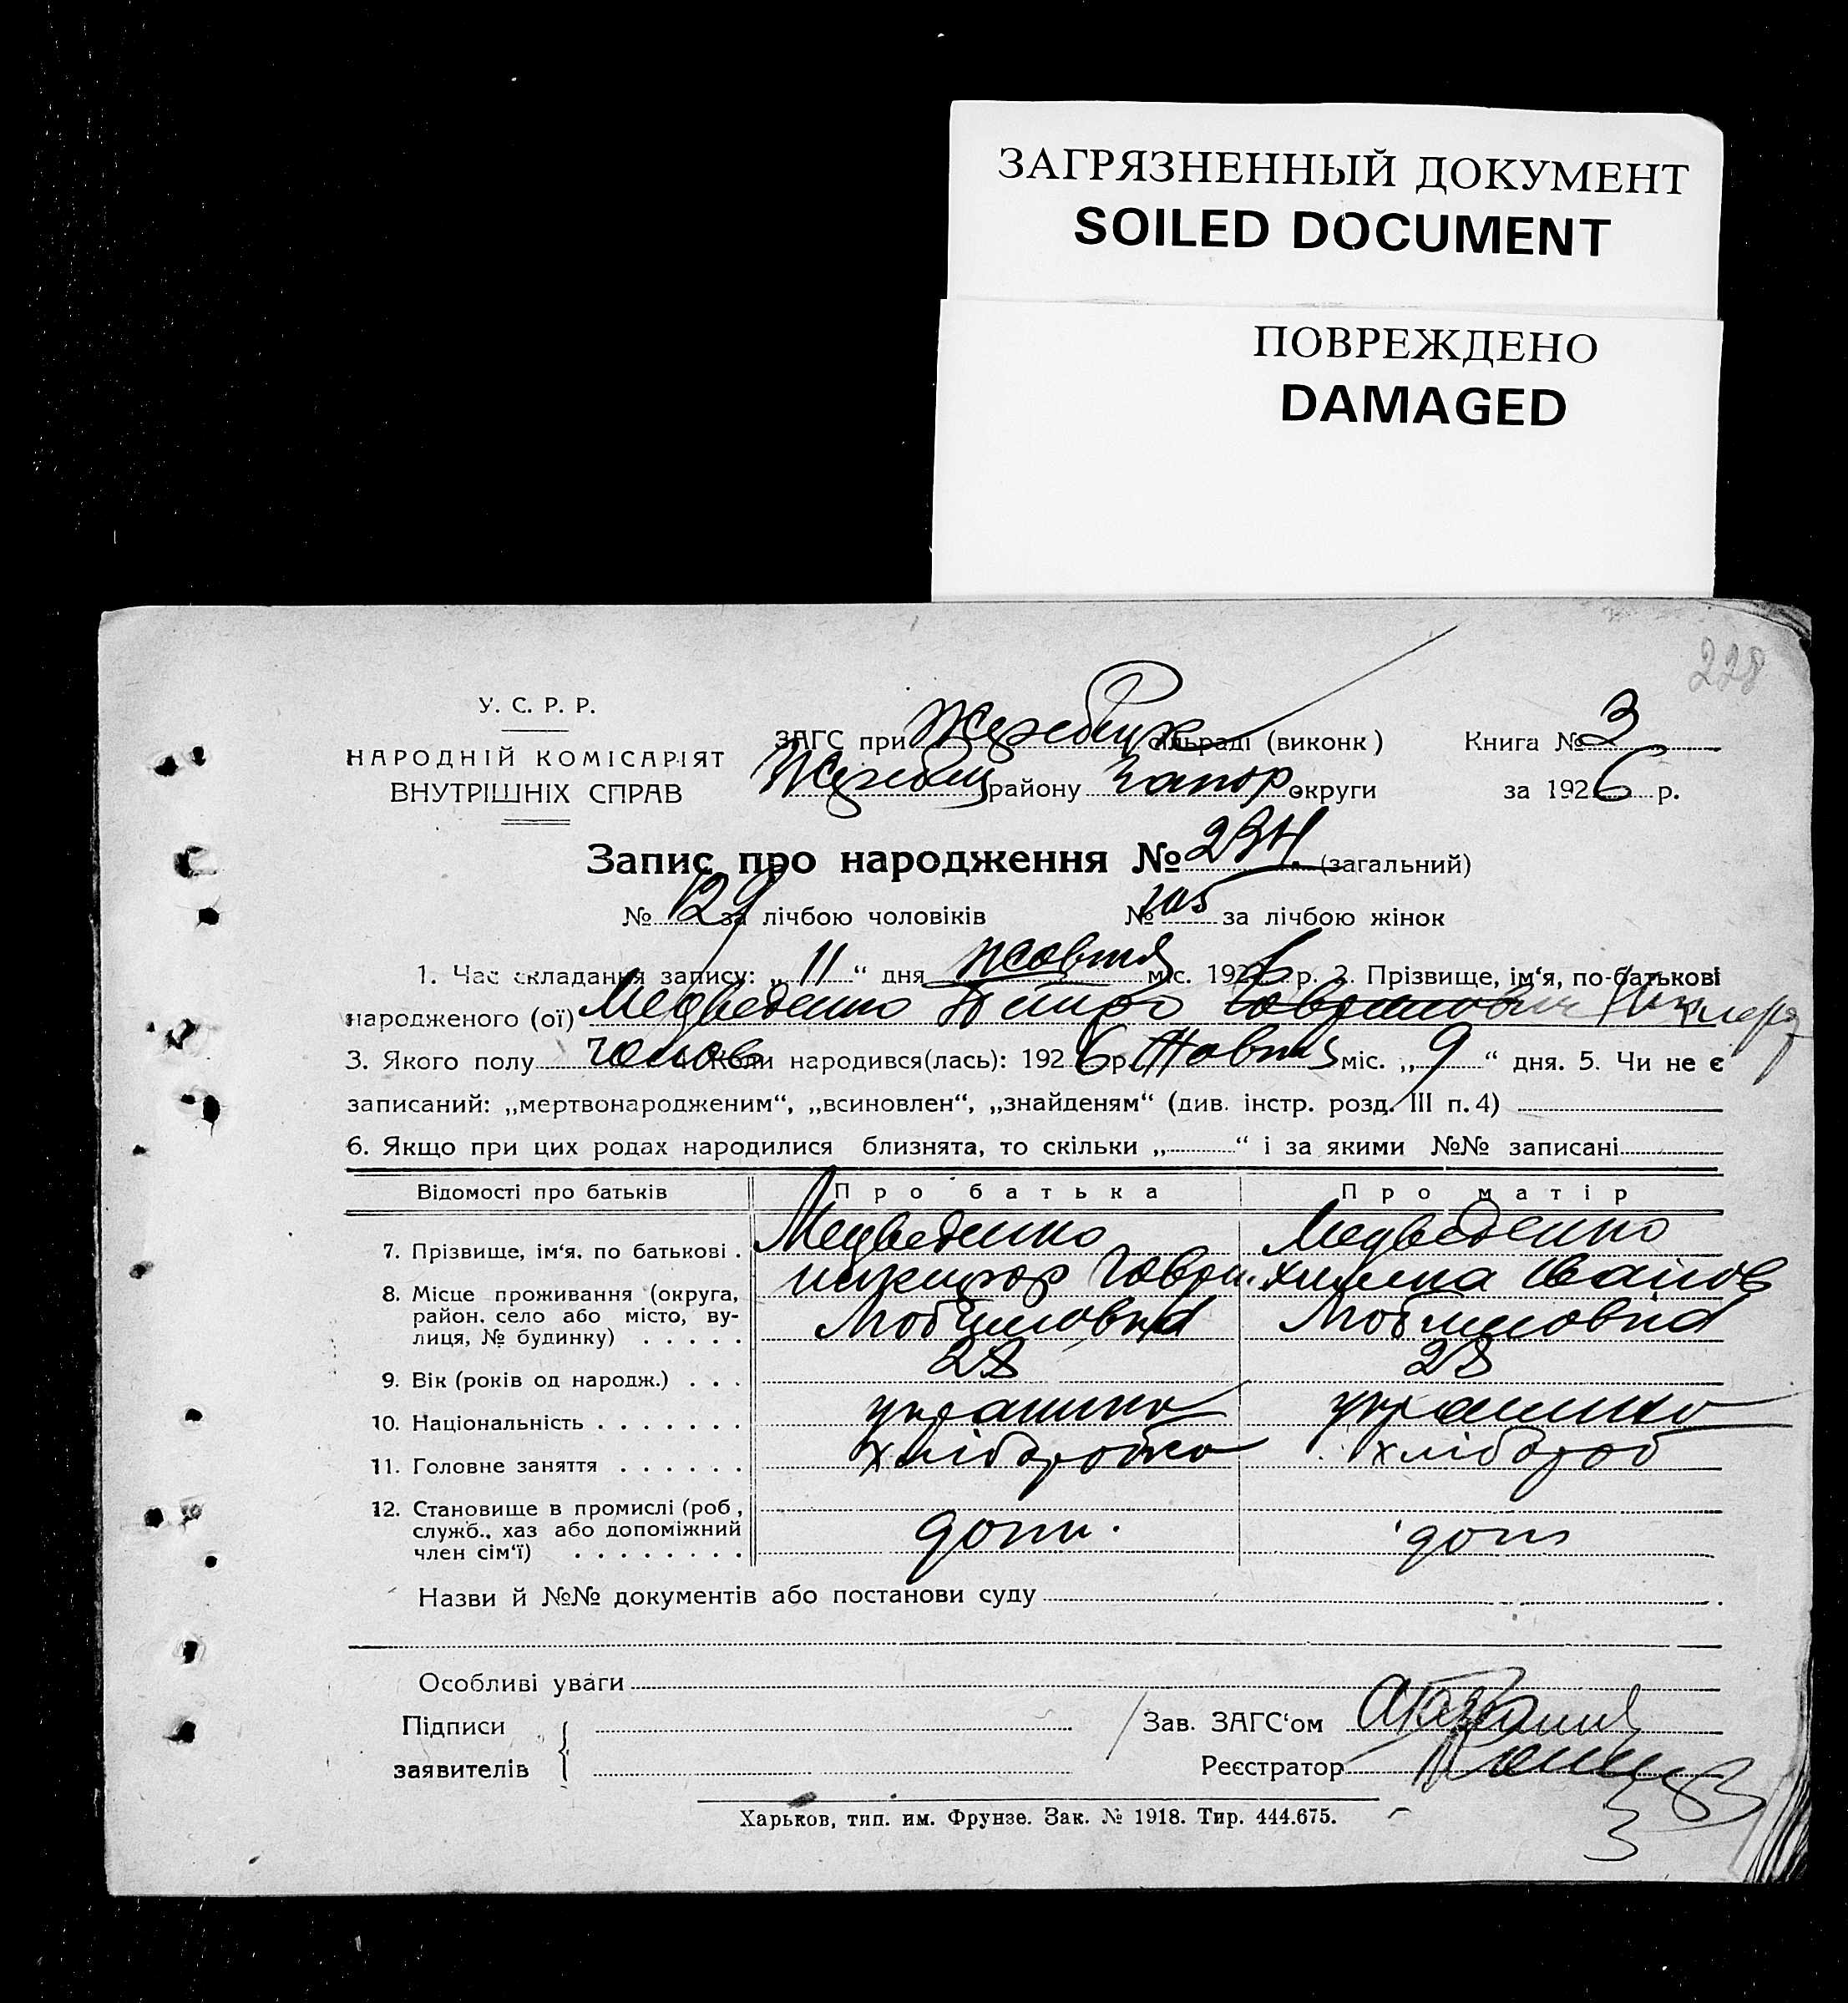 ЗАГРЯЗНЕННЫЙ ДОКУМЕНТ
SOILED DOCUMENT
ПОВРЕЖДЕНО
DAMAGED
228
У. С. Р. Р.
НАРОДНІЙ КОМІСАРІЯТ
ВНУТРІШНІХ СПРАВ
ЗАГС при Жеребецк сільраді (виконк) Книга № 3
Жеребец району Запор округи за 1926 р.
Запис про народження № 234 (загальний)
№ 129 за лічбою чоловіків № 105 за лічбою жінок
1. Час складання запису: „11“ дня жовтня міс. 1926 р. 2. Прізвище, ім‘я, по-батькові
народженого (ої) Медведенко Петро
3. Якого полу чолов 4. Коли народився(лась): 1926 р. Жовтня міс. „9“ дня. 5. Чи не є
записаний: „мертвонародженим“, „всиновлен“, „знайденям“ (див. інстр. розд. III п. 4)
6. Якщо при цих родах народилися близнята, то скільки „ “ і за якими №№ записані
Відомості про батьків Про батька Про матір
7. Прізвище, ім‘я, по батькові . Медведенко Медведенко
никифор Гаври. химка Иванов
8. Місце проживання (округа,
район, село або місто, ву-
лиця, № будинку) . . . . .
9. Вік (років од народж.) . . . 28 28
10. Національність . . . . . . . украинка
11. Головне заняття . . . . . . хлібороб
12. Становище в промислі (роб,
служб., хаз або допоміжний
член сім‘ї) . . . . . . . .
доп
Назви й №№ документів або постанови суду
Особливі уваги
Підписи
заявителів
Зав. ЗАГС‘ом
Реєстратор
Харьков, тип. им. Фрунзе. Зак. № 1918. Тир. 444.675.